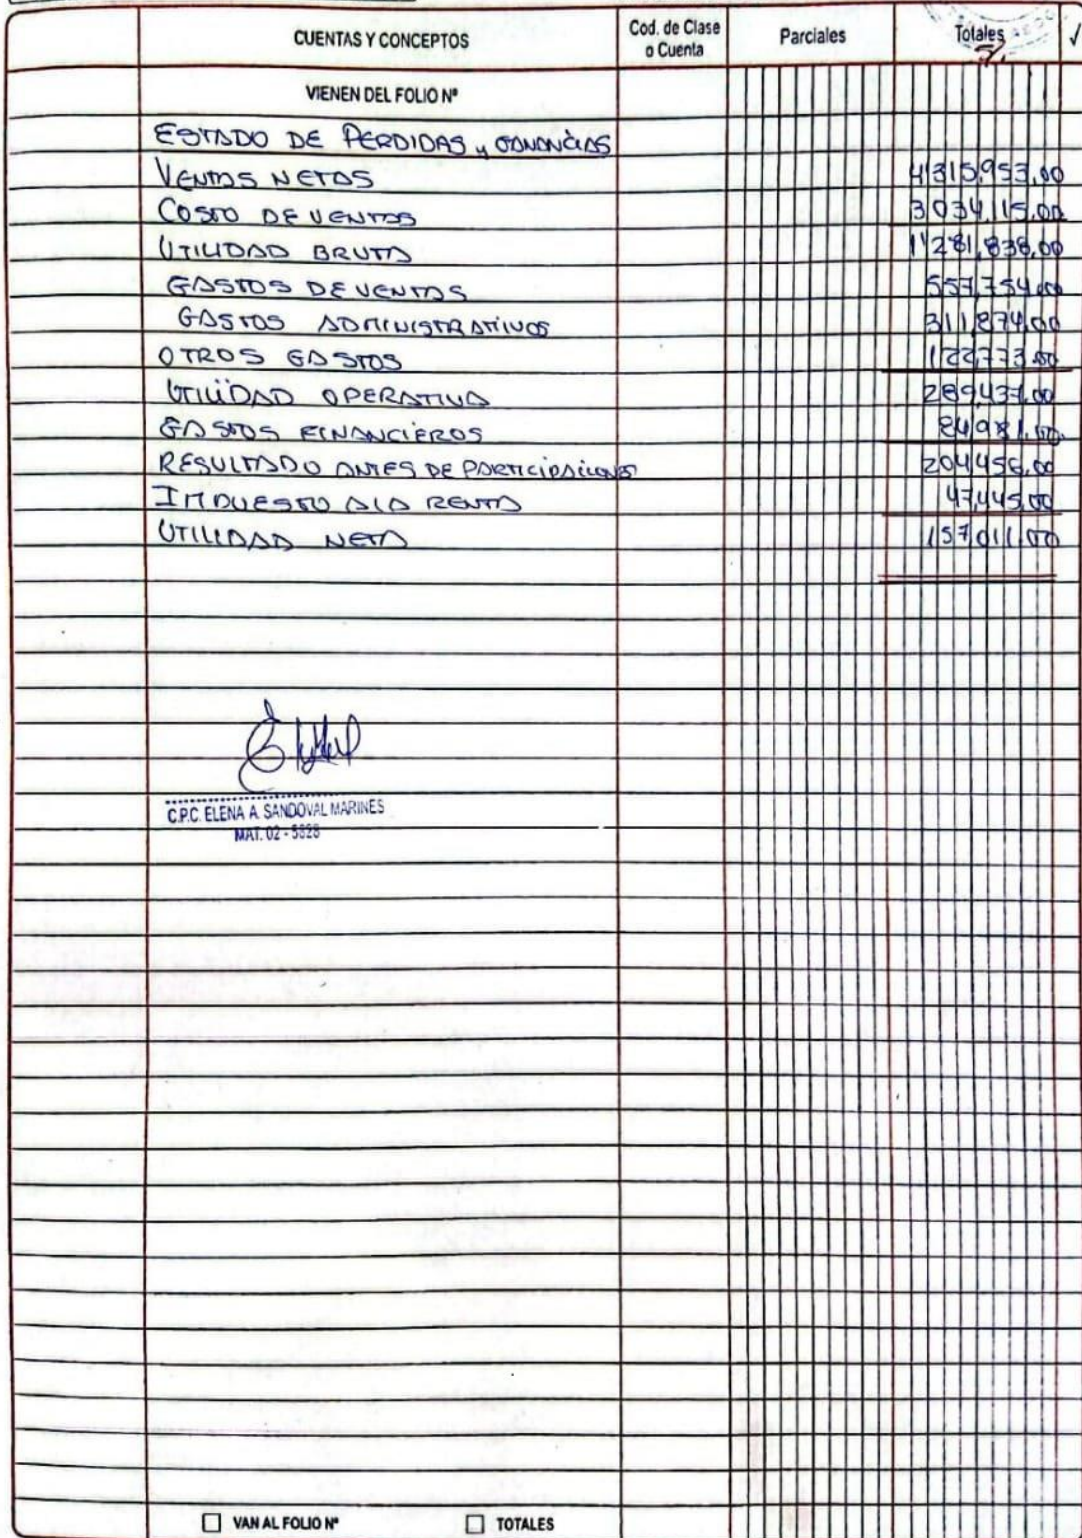 CUENTAS Y CONCEPTOS Cod. de Clase o Cuenta Parciales Totales √
S/.
VIENEN DEL FOLIO Nº
ESTADO DE PERDIDAS y GANANCIAS
VENTAS NETAS 4'315,953,00
COSTO DE VENTAS 3034,115,00
UTILIDAD BRUTA 1'281,838,00
GASTOS DE VENTAS 557,754,00
GASTOS ADMINISTRATIVOS 311,874,00
OTROS GASTOS 122,773,00
UTILIDAD OPERATIVA 289,437,00
GASTOS FINANCIEROS 84,981,00
RESULTADO ANTES DE PARTICIPACIONES 204,456,00
IMPUESTO A LA RENTA 47,445,00
UTILIDAD NETA 157,011,00
C.P.C. ELENA A. SANDOVAL MARINES
MAT. 02 - 5828
VAN AL FOLIO Nº TOTALES